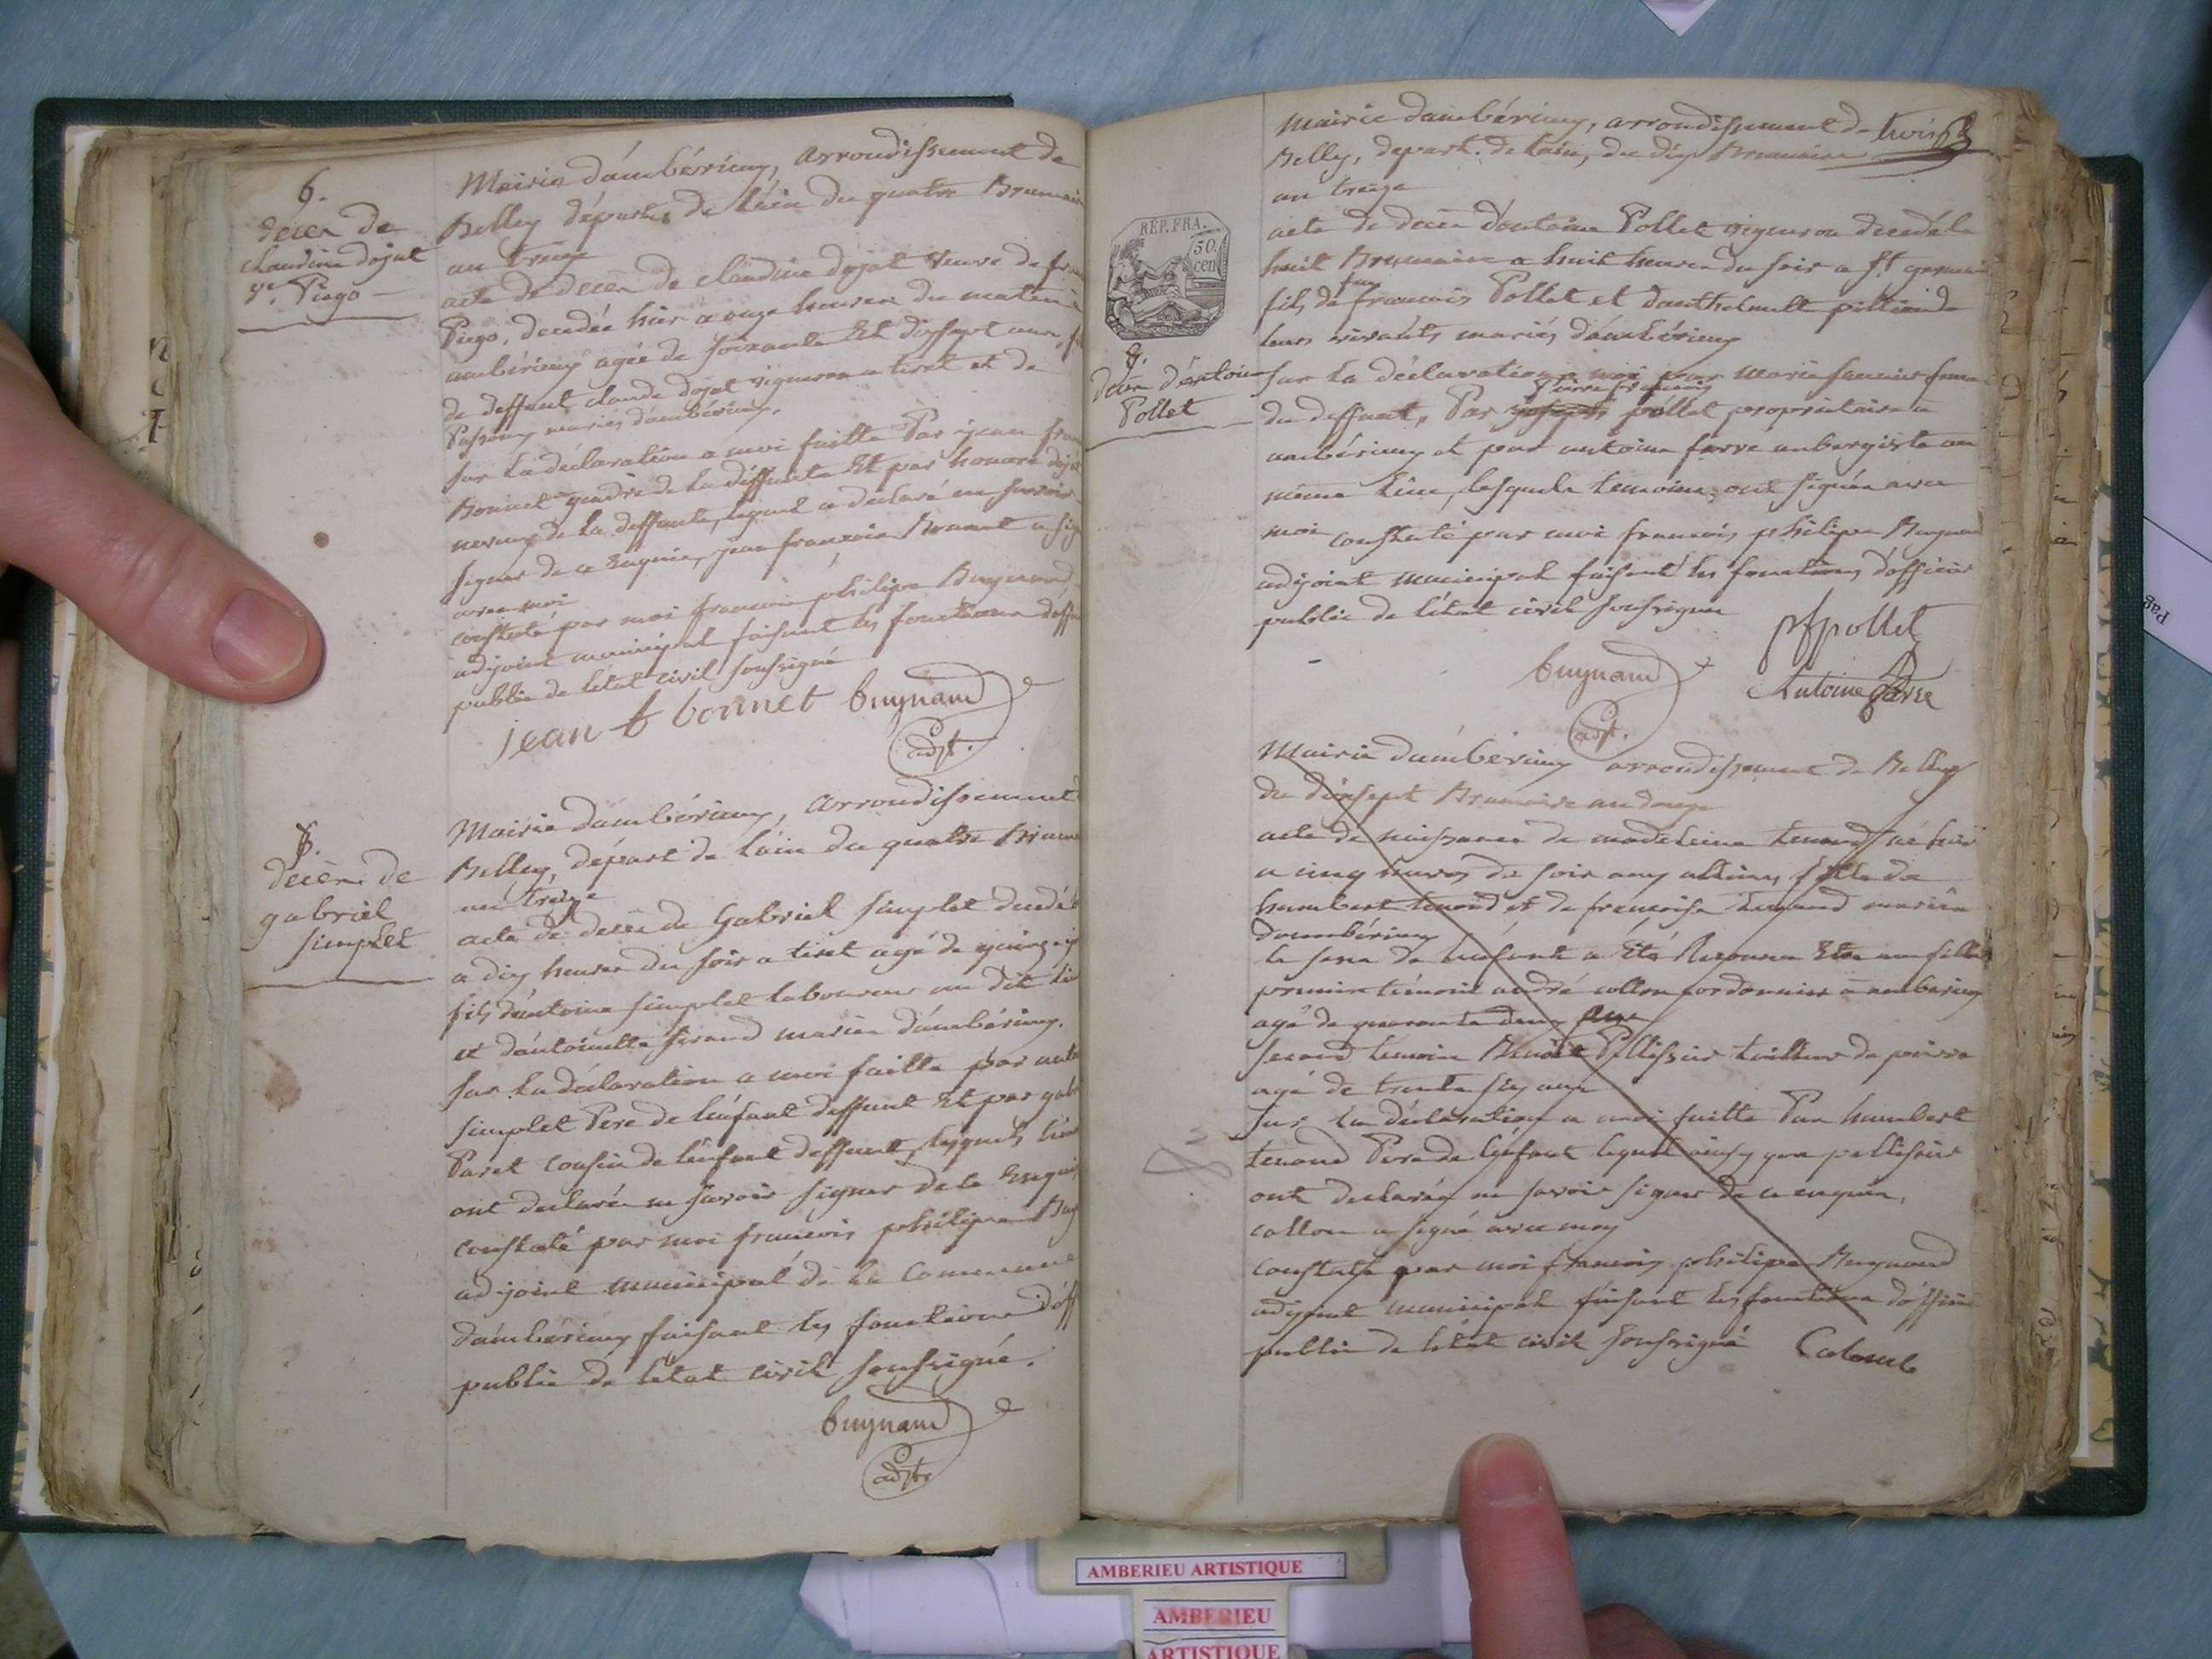 6.
décèn de
Claudine dojat
Ve. Piogo
Mairie d'ambérieux, arrondissement de
Belley départ. de l'ain du quatre Brumaire
an treize
acte de décèn de claudine dojat veuve de
Piogo, décédée hier a onze heures du matin
ambérieux agée de soixante Et dixsept ans,
de deffunt claude dojat vigneron a tiret et de
mariés d'ambérieux.
sur la déclaration a moi faitte Par jean
Bonnet gendre de la deffunte Et par honoré
neveux de la deffunte, lequel a déclaré ne savoir
signer de ce Enquis, jean françois Bonnet a
avec moi
constaté par moi francois philipe Buynand
adjoint municipal faisant les fonctions
public de l'état civil soussigné
jean f bonnet buynand
adjt.
8.
décèn de
gabriel
simplet
Mairie d'ambérieux, arrondissement
Belley, départ de l'ain du quatre
an treize
acte de décèn de Gabriel simplet décédé
a dix heures du soir a tiret agé de quinze
fils d'antoine simplet laboureur au dit
et d'antoinette ferand mariés d'ambérieux.
sur la déclaration a moi faitte par
simplet Pere de l'enfant deffunt Et par
Paret cousin de l'enfant deffunt, lesquels
ont déclaré ne savoir signer de ce
constaté par moi francois philipe
adjoint municipal de la commune
d'ambérieux faisant les fonctions
public de l'état civil soussigné.
buynand
adjt
Mairie d'ambérieux, arrondissement de
Belley, depart. de l'ain, du dix Brumaire
an treize
REP. FRA.
50.
cen
acte de décèn d'antoine Pollet vigneron décédé le
huit Brumaire a huit heures du soir a St germain
fils de feu francois Pollet et d'anthelmette
leurs vivants mariés d'ambérieux
9.
décèn d'antoine
Pollet
sur la déclaration a moi par marie
du deffunt, Par pierre francois pollet propriétaire a
ambérieux et par antoine farre aubergiste au
même lieu, lesquels temoins ont signés avec
moi constaté par moi francois philipe Buynand
adjoint municipal faisant les fonctions d'officier
public de l'état civil soussigné
pfpollet
buynand
Antoine
adjt.
Mairie d'ambérieux arrondissement de Belley
du dixsept Brumaire an douze
acte de naissance de madeleine tenand né hier
a cinq heures du soir aux allimes fille de
humbert tenand et de francoise mariés
d'ambérieux
le sexe de l'enfant a Eté Reconnu Etre une fille
premier témoin andré collon cordonnier a ambérieux
agé de quarante deux ans
second temoin Benoit Pellissier tailleur de pierre
agé de trente six ans
sur la déclaration a moi faitte Par humbert
tenand Pere de l'enfant lequel ainsy que pellissier
ont déclarés ne savoir signer de ce enquis,
collon a signé avec moy
constaté par moi francois philipe Buynand
adjoint municipal faisant les fonctions d'officier
public de l'état civil soussigné Colomb
AMBERIEU ARTISTIQUE
AMBERIEU
ARTISTIQUE